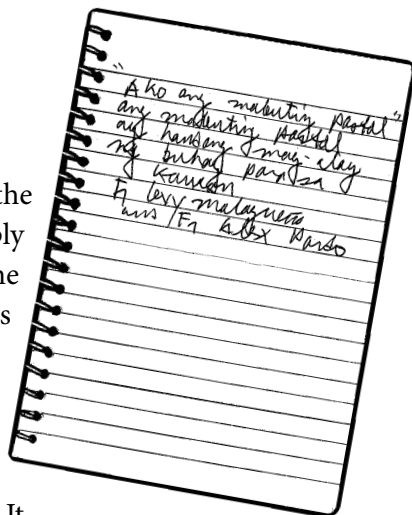 "Ako ang mabuting pastol"
ang mabuting pastol
ay handang mag-alay
ng buhay para sa
kawan
Fr Levy
and Fr Alex Pardo
the
s
It